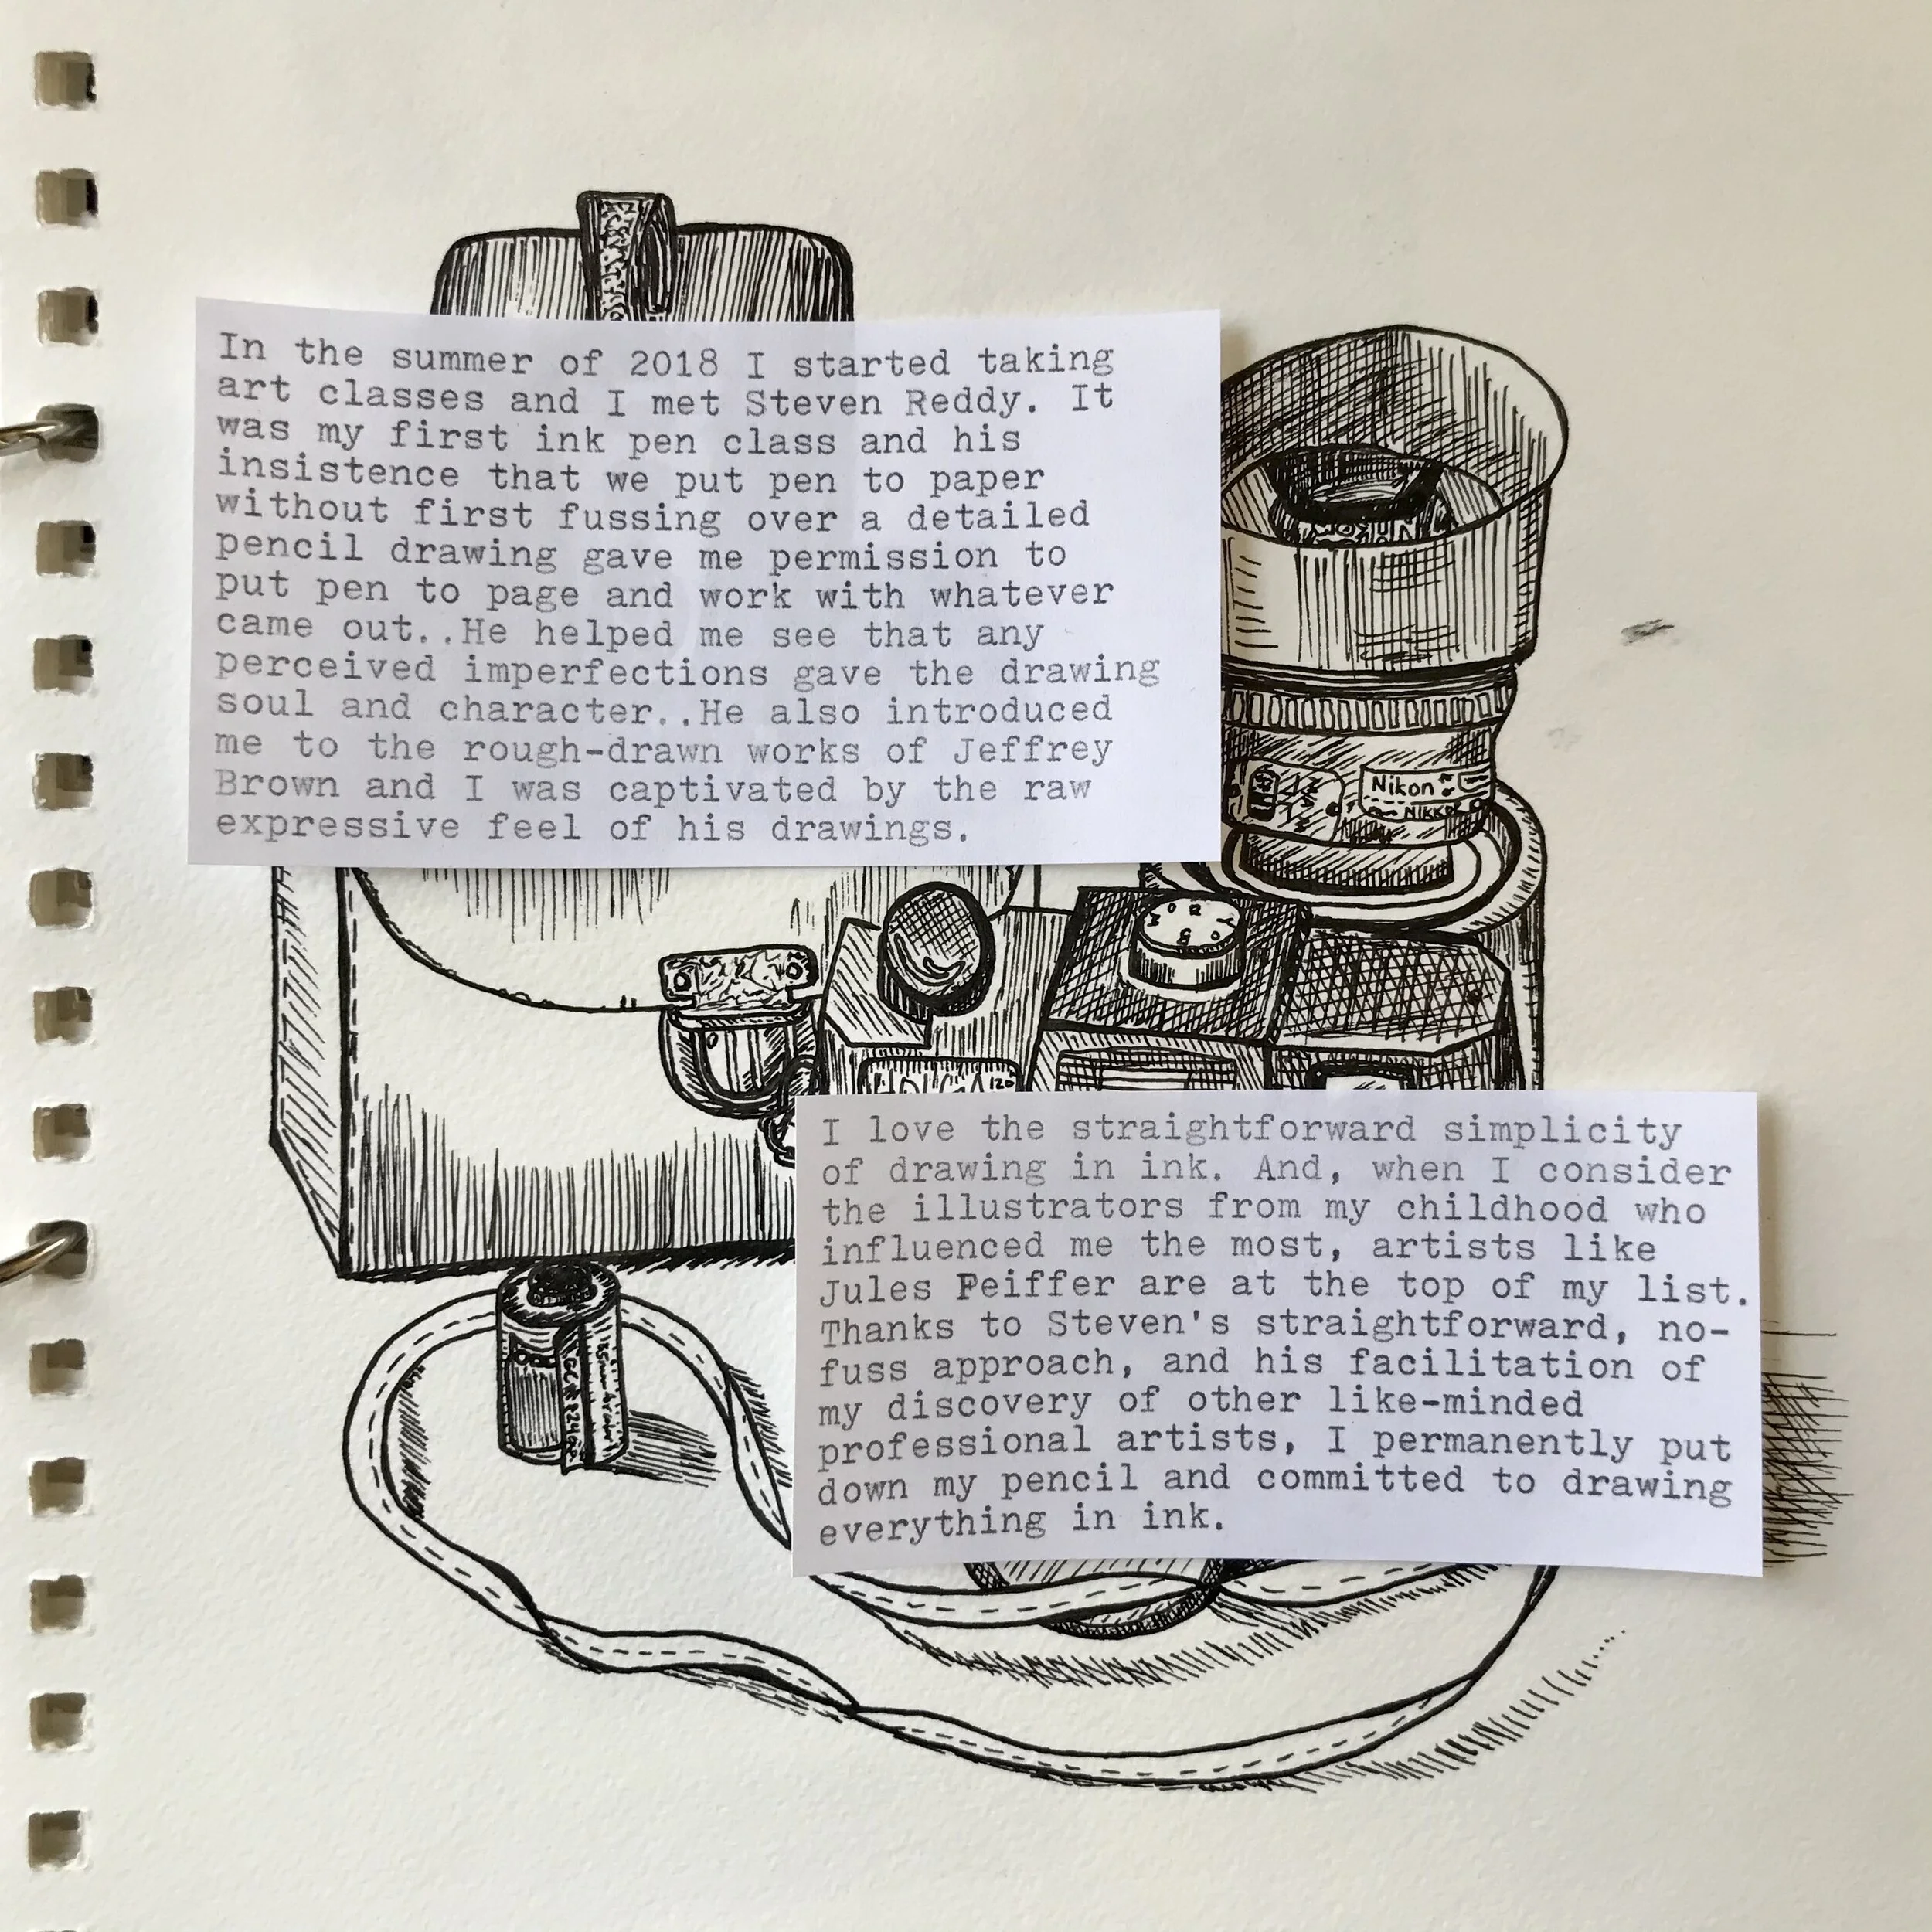 In the summer of 2018 I started taking
art classes and I met Steven Reddy. It
was my first ink pen class and his
insistence that we put pen to paper
without first fussing over a detailed
pencil drawing gave me permission to
put pen to page and work with whatever
came out..He helped me see that any
perceived imperfections gave the drawing
soul and character..He also introduced
me to the rough-drawn works of Jeffrey
Brown and I was captivated by the raw
expressive feel of his drawings.
Nikon
I love the straightforward simplicity
of drawing in ink. And, when I consider
the illustrators from my childhood who
influenced me the most, artists like
Jules Feiffer are at the top of my list.
Thanks to Steven's straightforward, no-
fuss approach, and his facilitation of
my discovery of other like-minded
professional artists, I permanently put
down my pencil and committed to drawing
everything in ink.